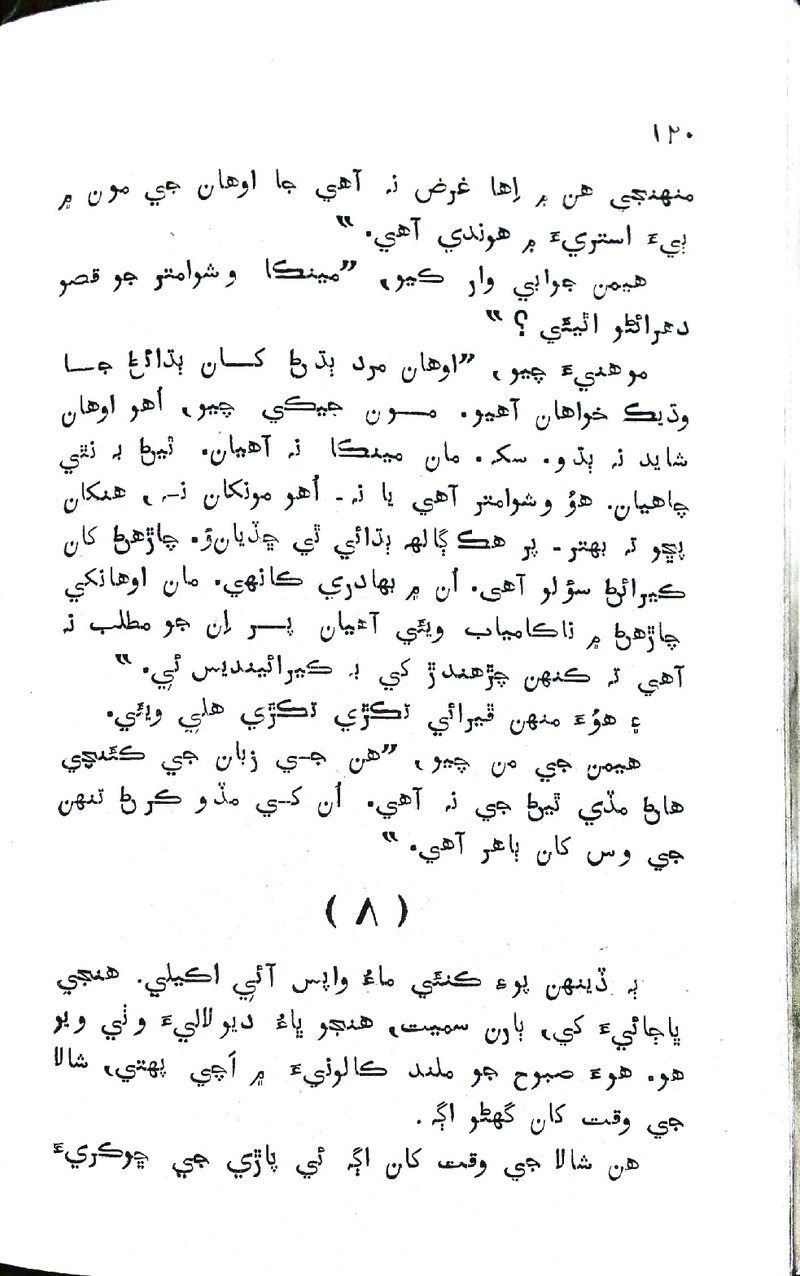 ١٢٠
منهنجي هن ۾ اِها غرض نہ آهي جا اوهان جي مون ۾
ٻيءَ استريءَ ۾ هوندي آهي. ”
هيمن جوابي وار ڪيو، ”مينڪا وشوامتر جو قصو
دهرائڻو اٿيئي ؟ ”
موهنيءَ چيو، ”اوهان مرد ٻڌڻ کان ٻڌائڻ جا
وڌيڪ خواهان آهيو. مون جيڪي چيو، اُهو اوهان
شايد نہ ٻڌو. سکہ. مان مينڪا نہ آهيان. ٿيڻ بہ نٿي
چاهيان. هوُ وشوامتر آهي يا نہ - اُهو مونکان نہ، هنکان
پڇو تہ بهتر - پر هڪ ڳالهہ ٻڌائي ٿي ڇڏيانوَ. چاڙهڻ کان
ڪيرائڻ سؤلو آهي. اُن ۾ بهادري ڪانهي. مان اوهانکي
چاڙهڻ ۾ ناڪامياب ويئي آهيان پر اِن جو مطلب نہ
آهي تہ ڪنهن چڙهندڙ کي بہ ڪيرائينديس ئي. ”
۽ هوُءَ منهن ڦيرائي تڪڙي تڪڙي هلي ويئي.
هيمن جي من چيو، ”هن جي زبان جي ڪئنچي
هاڻ مڏي ٿيڻ جي نہ آهي. اُن کي مڏو ڪرڻ تنهن
جي وس کان ٻاهر آهي. ”
( ٨ )
ٻہ ڏينهن پوءِ ڪنئي ماءُ واپس آئي اڪيلي. هنجي
ڀاڄائيءَ کي، ٻارن سميت، هنجو ڀاءُ ديولاليءَ وٺي ويو
هو. هوءَ صبوح جو ملند ڪالونيءَ ۾ اَچي پهتي، شالا
جي وقت کان گهڻو اڳہ .
هن شالا جي وقت کان اڳہ ئي پاڙي جي ڇوڪريءَ